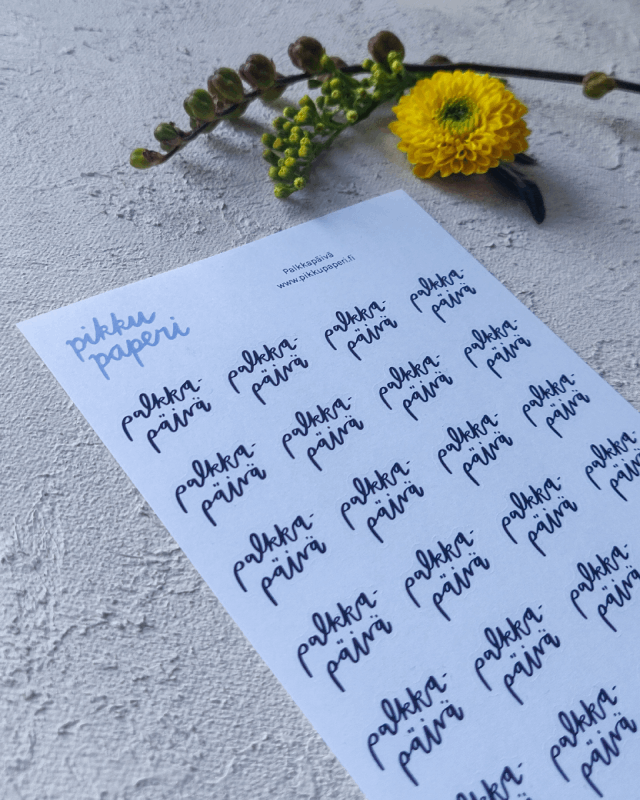 Palkkapäivä
www.pikkupaperi.fi
pikku
paperi
palkka-
päivä
palkka-
päivä
palkka-
päivä
palkka-
päivä
palkka-
päivä
palkka-
päivä
palkka-
päivä
palkka-
päivä
palkka-
päivä
palkka-
päivä
palkka-
päivä
palkka-
päivä
palkka-
päivä
palkka-
päivä
palkka-
päivä
palkka-
päivä
palkka-
päivä
palkka-
päivä
palkka-
päivä
palkka-
palkka-
päivä